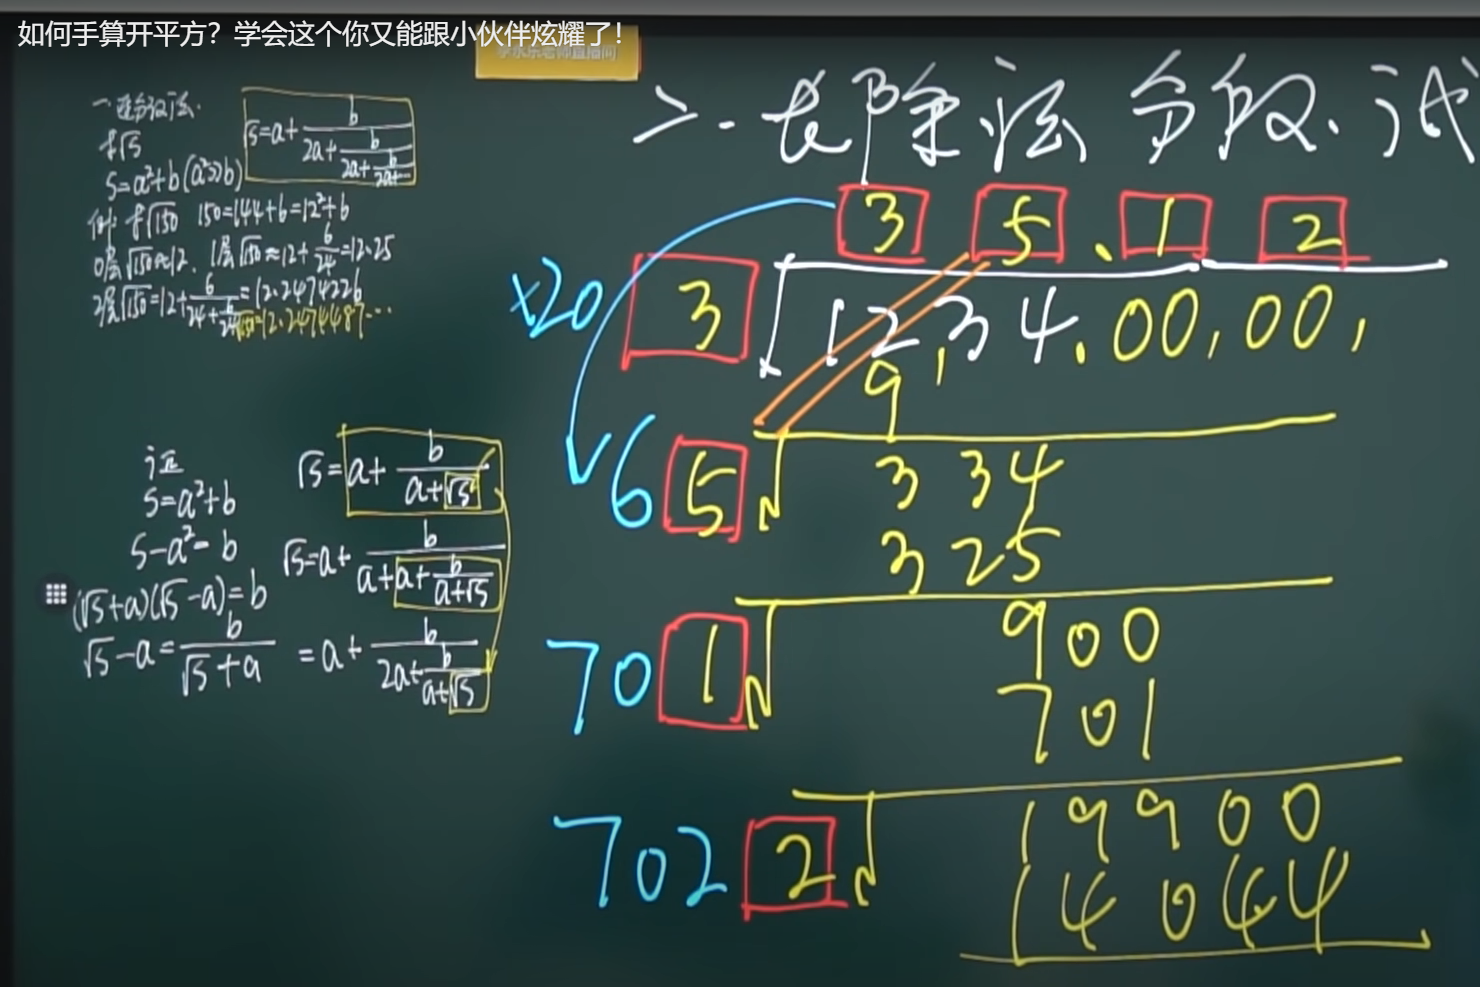 如何手算开平方？学会这个你又能跟小伙伴炫耀了！
李永乐老师直播间
一、连分数法.
求√S
S=a²+b(a²>>b)
√S=a+b/(2a+b/(2a+b/(2a+…
例: 求√150 150=144+6=12²+6
0层√150≈12. 1层√150≈12+6/24=12.25
2层√150=12+6/(24+6/24)=12.2474226
√150=12.2474487…
证
S=a²+b
S-a²=b
(√S+a)(√S-a)=b
√S-a=b/(√S+a)
√S=a+b/(a+√S)
√S=a+b/(a+a+b/(a+√S))
=a+b/(2a+b/(a+√S))
二.长除法 分段、试
3 5 . 1 2
×20 3 √12,34.00,00,
9
6 5 √ 3 34
3 25
70 1 √ 900
701
702 2 √ 19900
14044